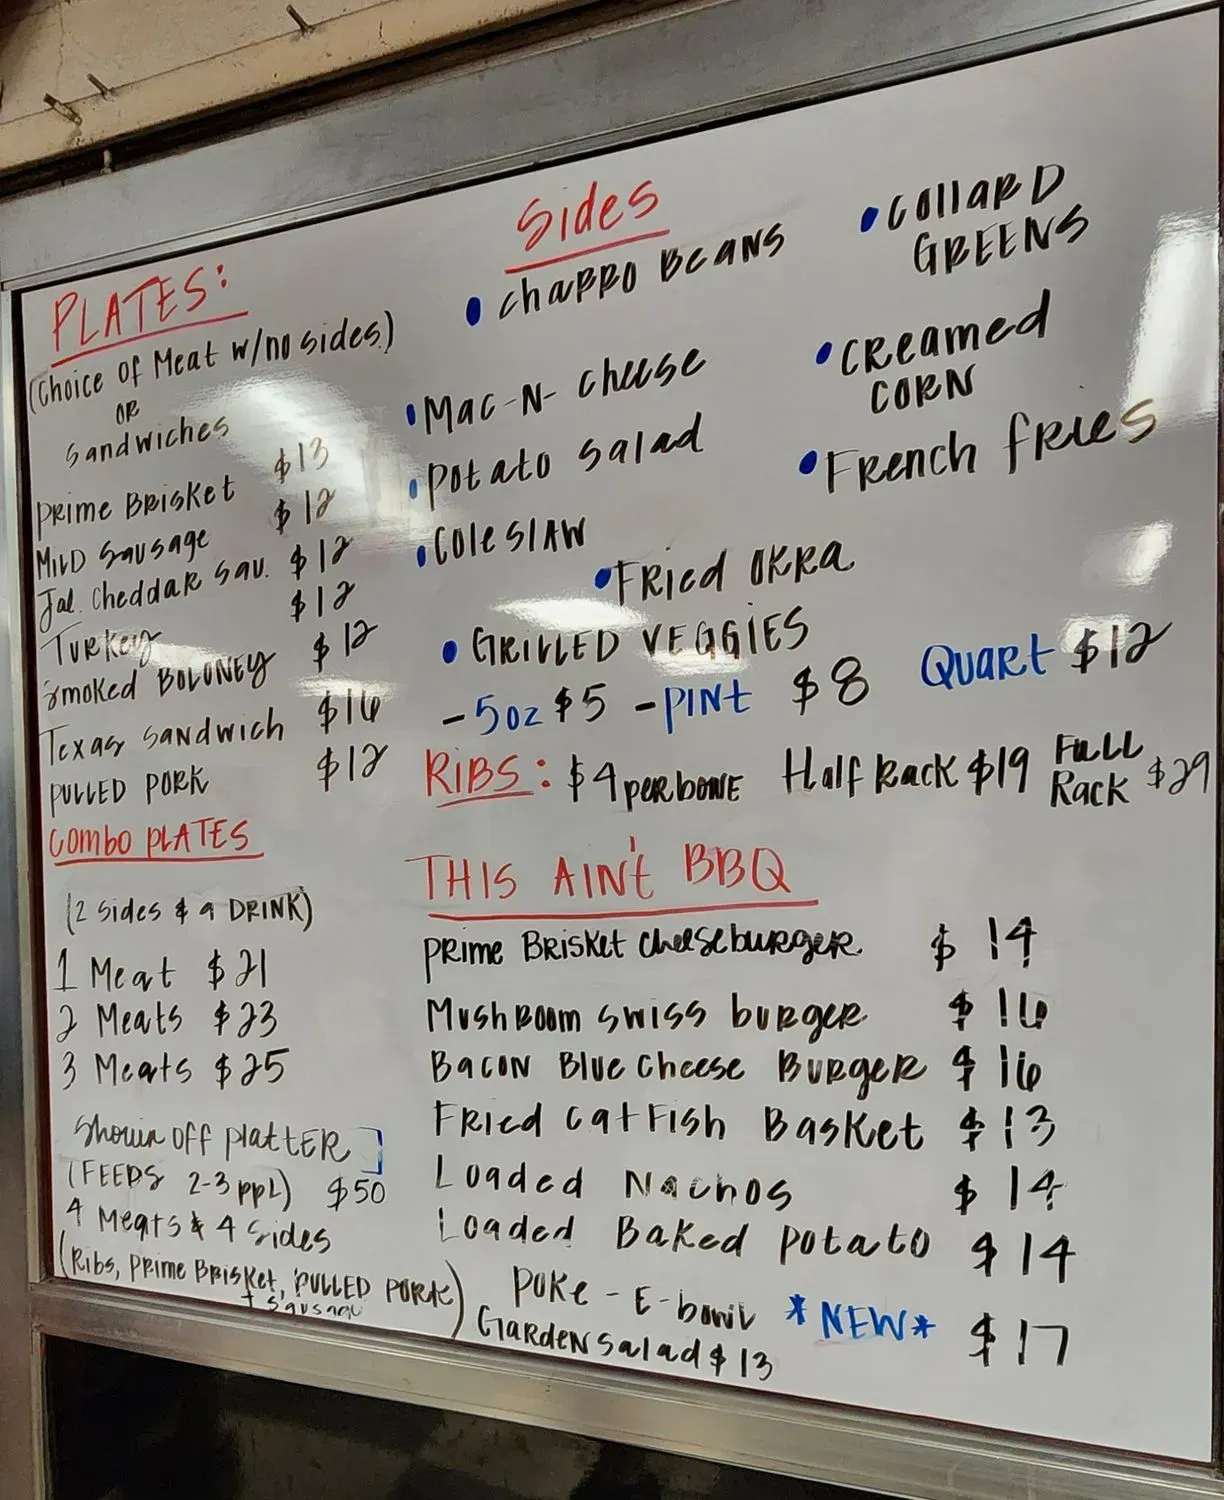 PLATES:
(Choice of Meat w/no sides)
OR
Sandwiches
Prime Brisket $13
Mild Sausage $12
Jal. Cheddar Sau. $12
Turkey $12
Smoked Boloney $12
Texas Sandwich $16
Pulled Pork $12
Combo Plates
(2 sides & a Drink)
1 Meat $21
2 Meats $23
3 Meats $25
Showin off platter
(Feeds 2-3 ppl) $50
4 Meats & 4 Sides
(Ribs, Prime Brisket, Pulled Pork
+ Sausage)
Sides
• Charro Beans
• Mac-N-Cheese
• Potato Salad
• Coleslaw
• Collard
Greens
• Creamed
Corn
• French fries
• Fried Okra
• Grilled Veggies
- 5oz $5 - Pint $8 Quart $12
Ribs: $4 per bone Half Rack $19 Full
Rack $29
THIS AIN't BBQ
Prime Brisket Cheeseburger $14
Mushroom Swiss burger $16
Bacon Blue Cheese Burger $16
Fried Catfish Basket $13
Loaded Nachos $14
Loaded Baked Potato $14
Poke-E-bowl *NEW* $17
Garden Salad $13